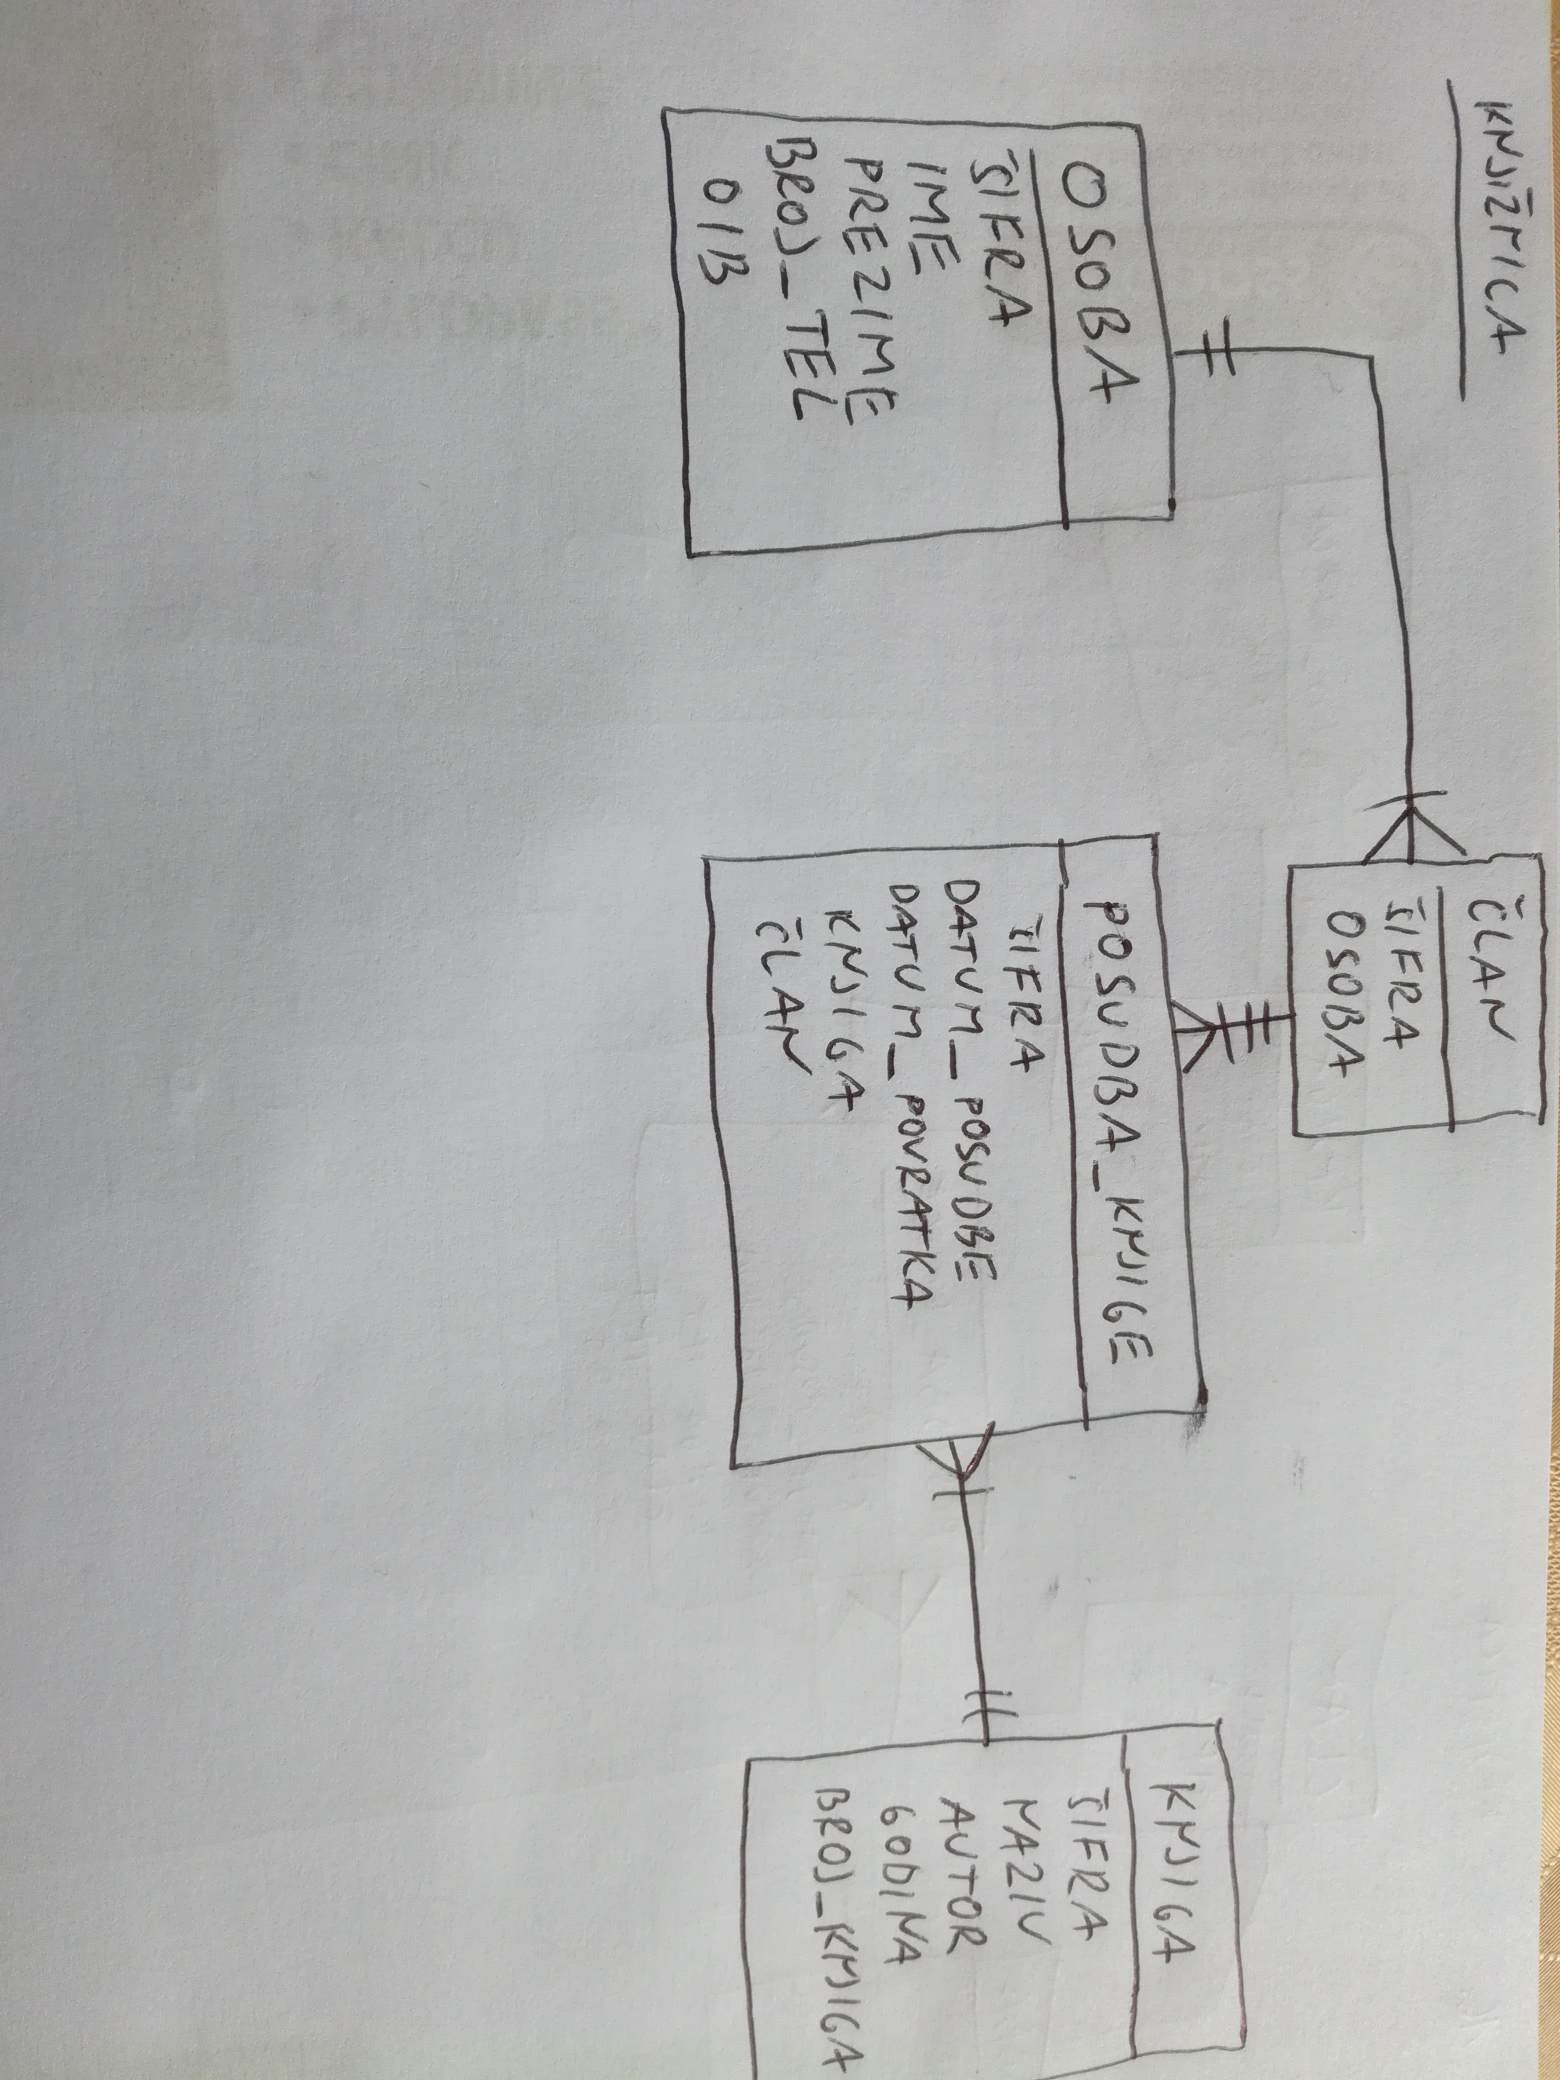 KNJIŽNICA
ČLAN
ŠIFRA
OSOBA
OSOBA
ŠIFRA
IME
PREZIME
BROJ_TEL
OIB
POSUDBA_KNJIGE
ŠIFRA
DATUM_POSUDBE
DATUM_POVRATKA
KNJIGA
ČLAN
KNJIGA
ŠIFRA
NAZIV
AUTOR
GODINA
BROJ_KNJIGA